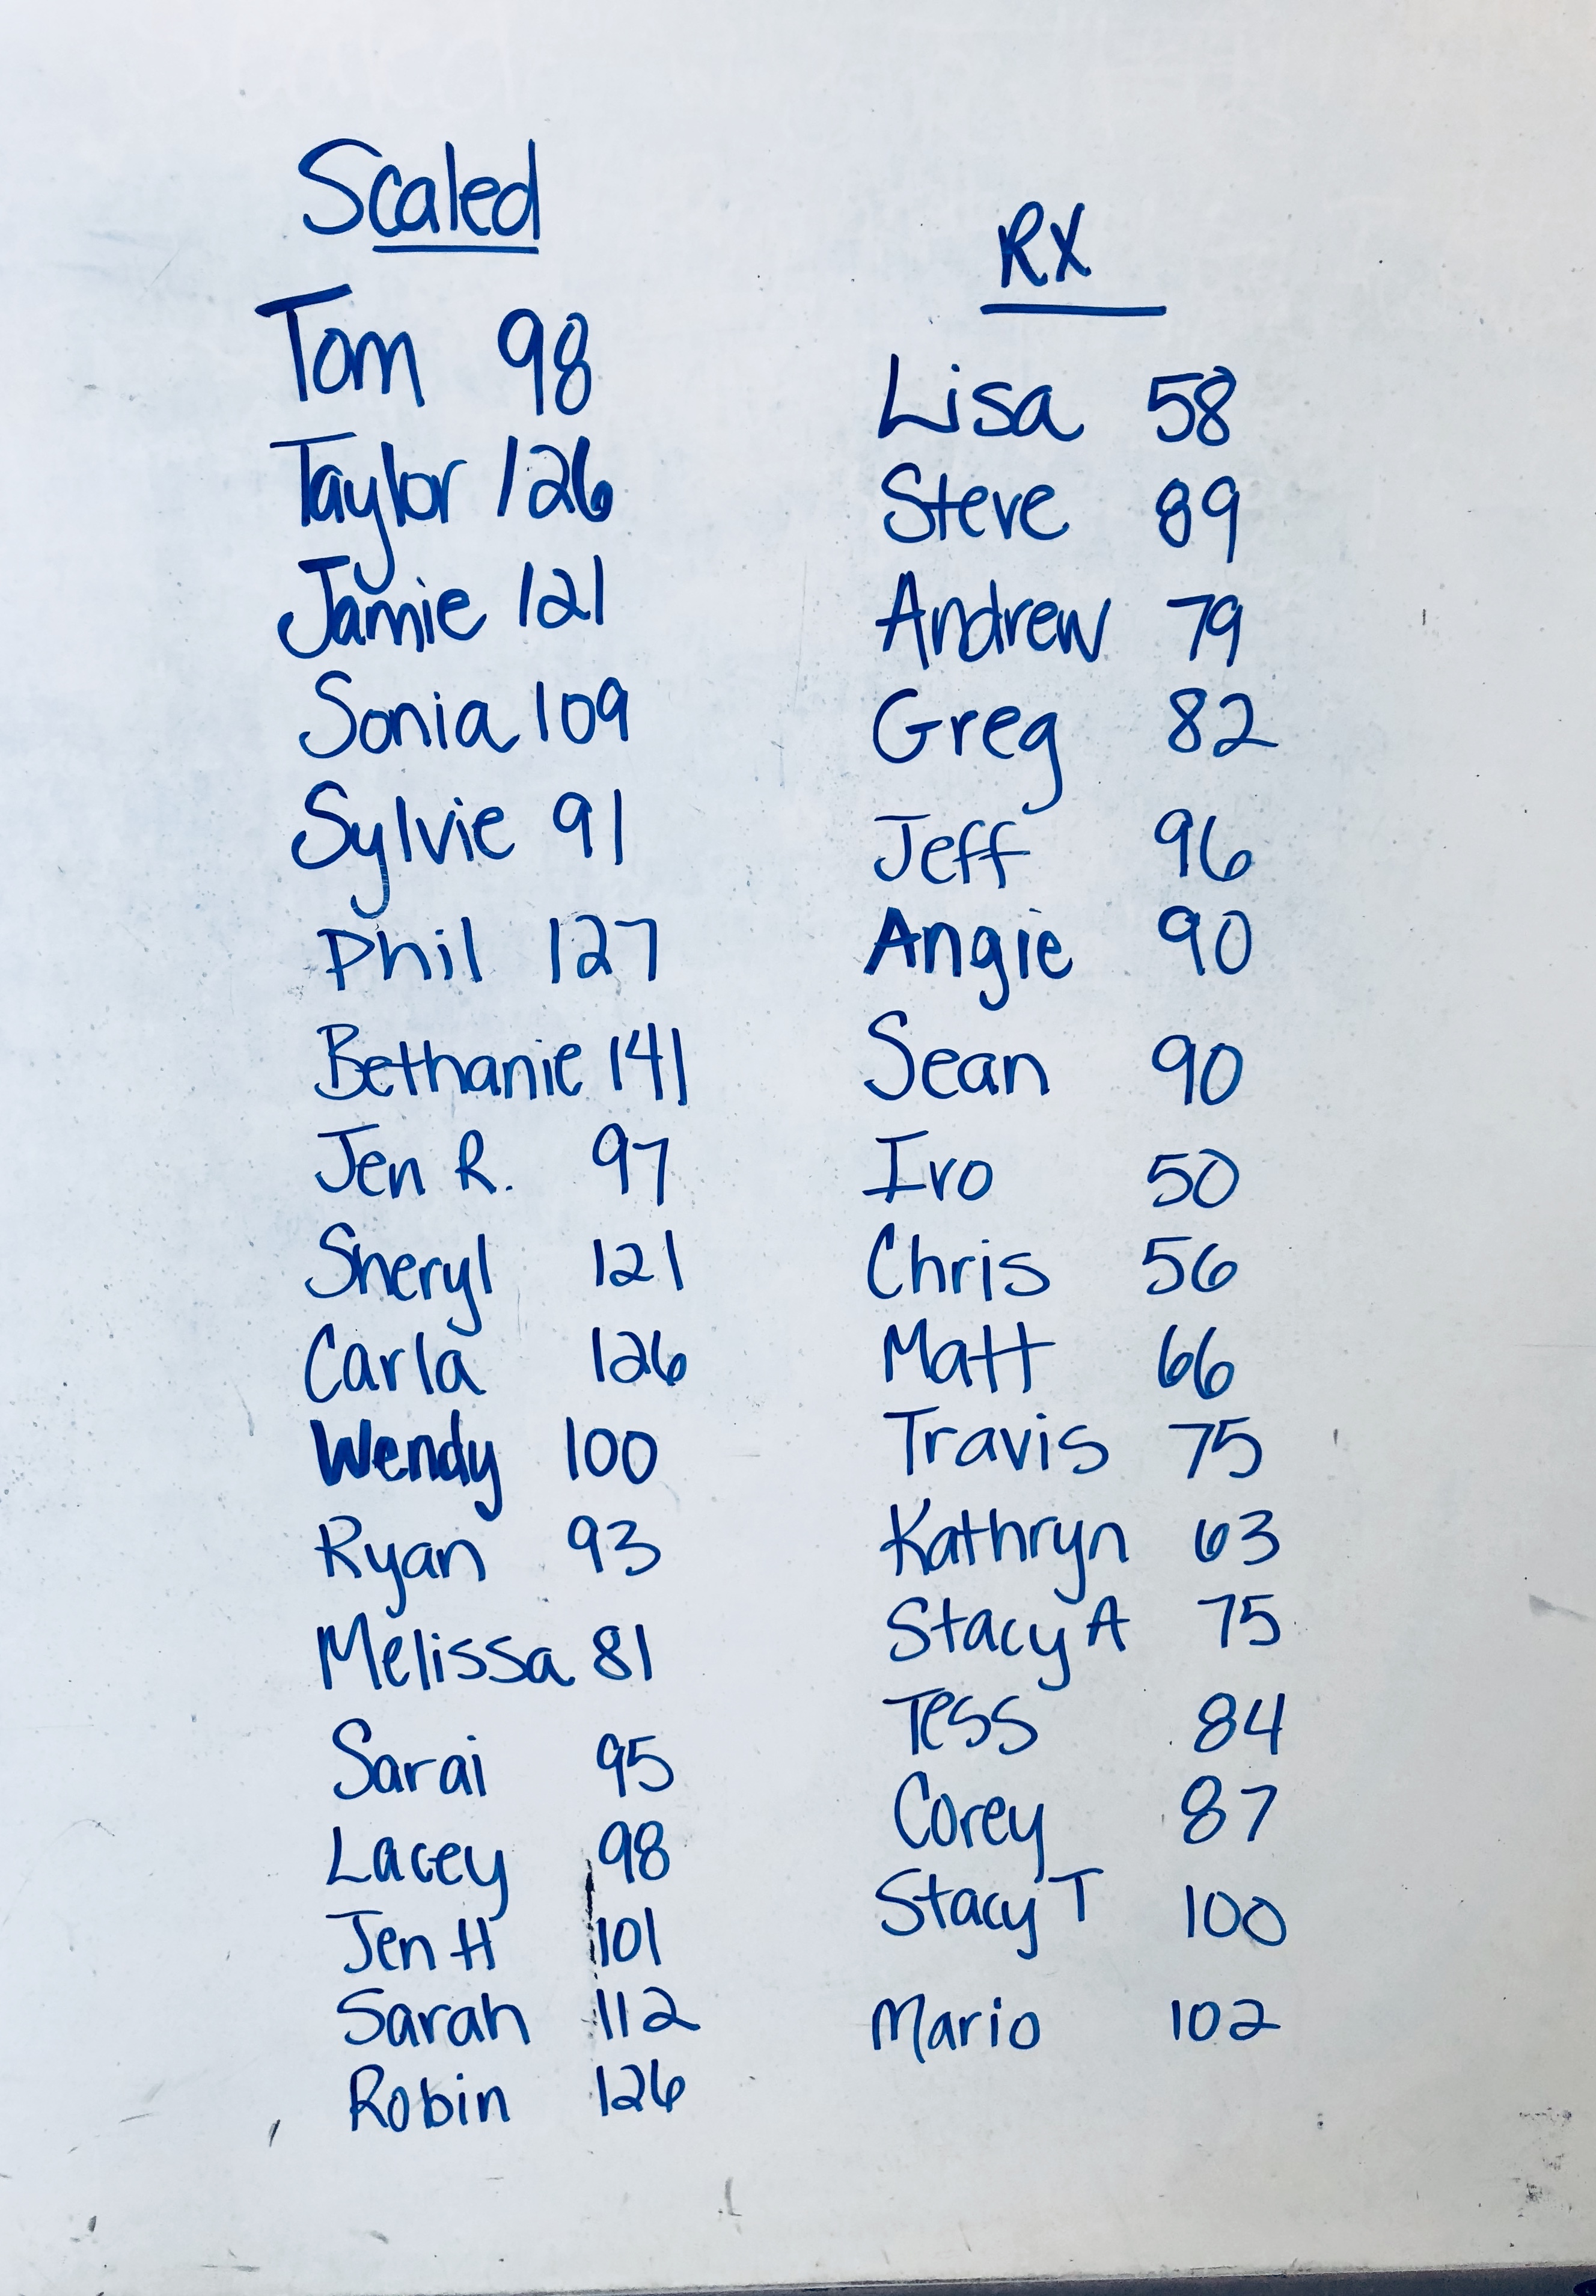 Scaled
Tom 98
Taylor 126
Jamie 121
Sonia 109
Sylvie 91
Phil 127
Bethanie 141
Jen R. 97
Sheryl 121
Carla 126
Wendy 100
Ryan 93
Melissa 81
Sarai 95
Lacey 98
Jen H 101
Sarah 112
Robin 126
RX
Lisa 58
Steve 89
Andrew 79
Greg 82
Jeff 96
Angie 90
Sean 90
Ivo 50
Chris 56
Matt 66
Travis 75
Kathryn 63
Stacy A 75
Tess 84
Corey 87
Stacy T 100
Mario 102